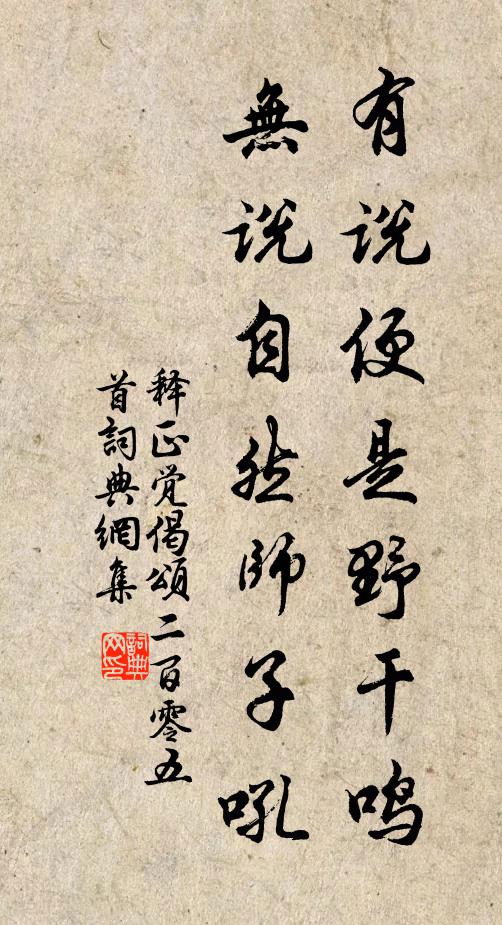 有说便是野干鸣
無说自然師子吼
释正觉偈頌二百零五
首詞典網集
詞典
网印